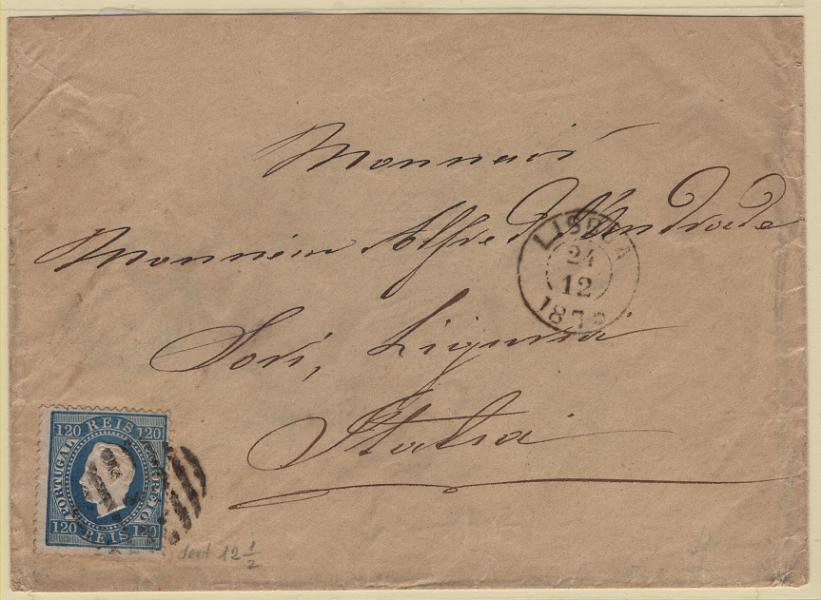 Monsieur
Monsieur Alfred Andrade
LISBOA
24
12
Sori, Liguria
Italia
120 REIS 120
PORTUGAL
CORREIO
120 REIS 120
dent 12 1/2